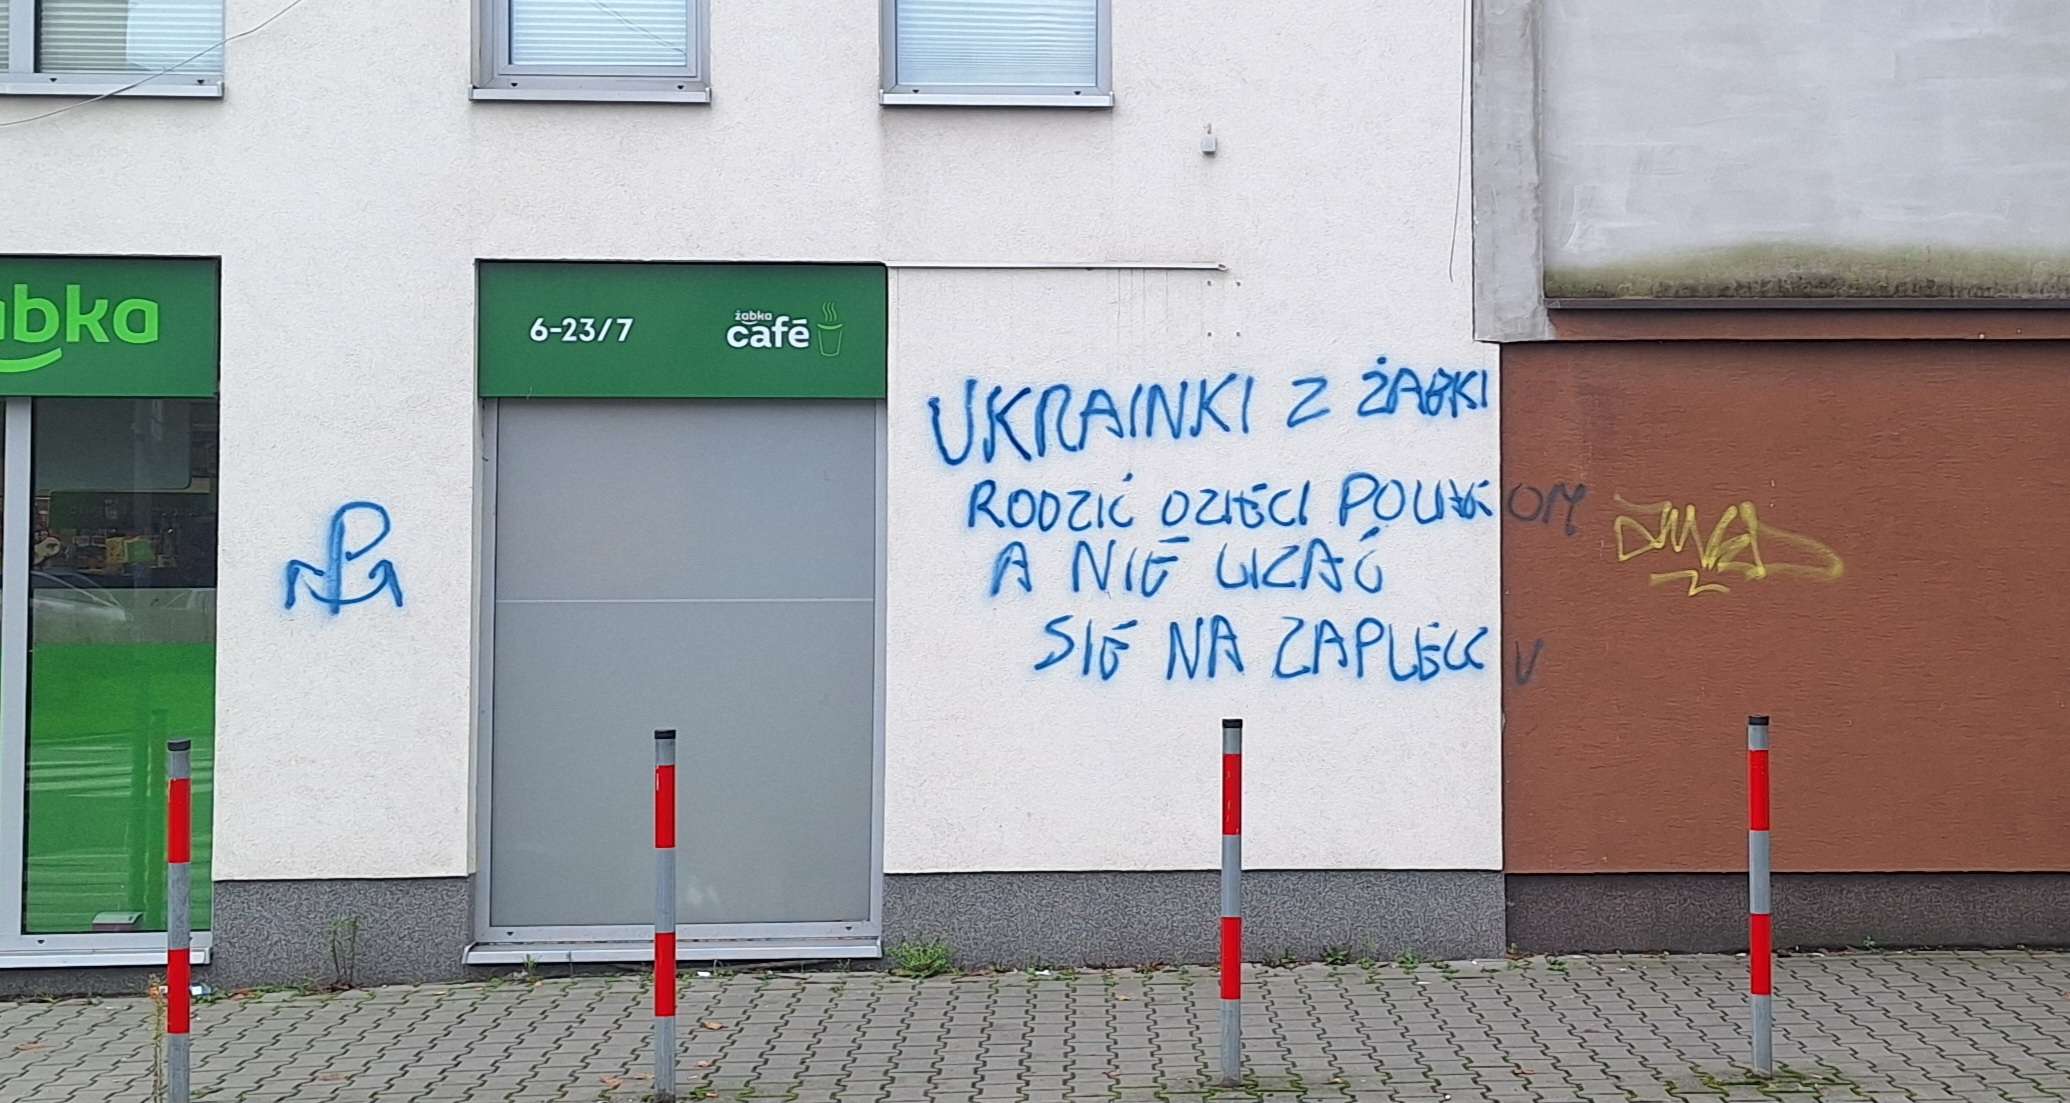 abka
6-23/7
żabka
café
UKRAINKI Z ŻABKI
RODZIĆ DZIECI POLAKOM
A NIE LIZAĆ
SIE NA ZAPLECZU